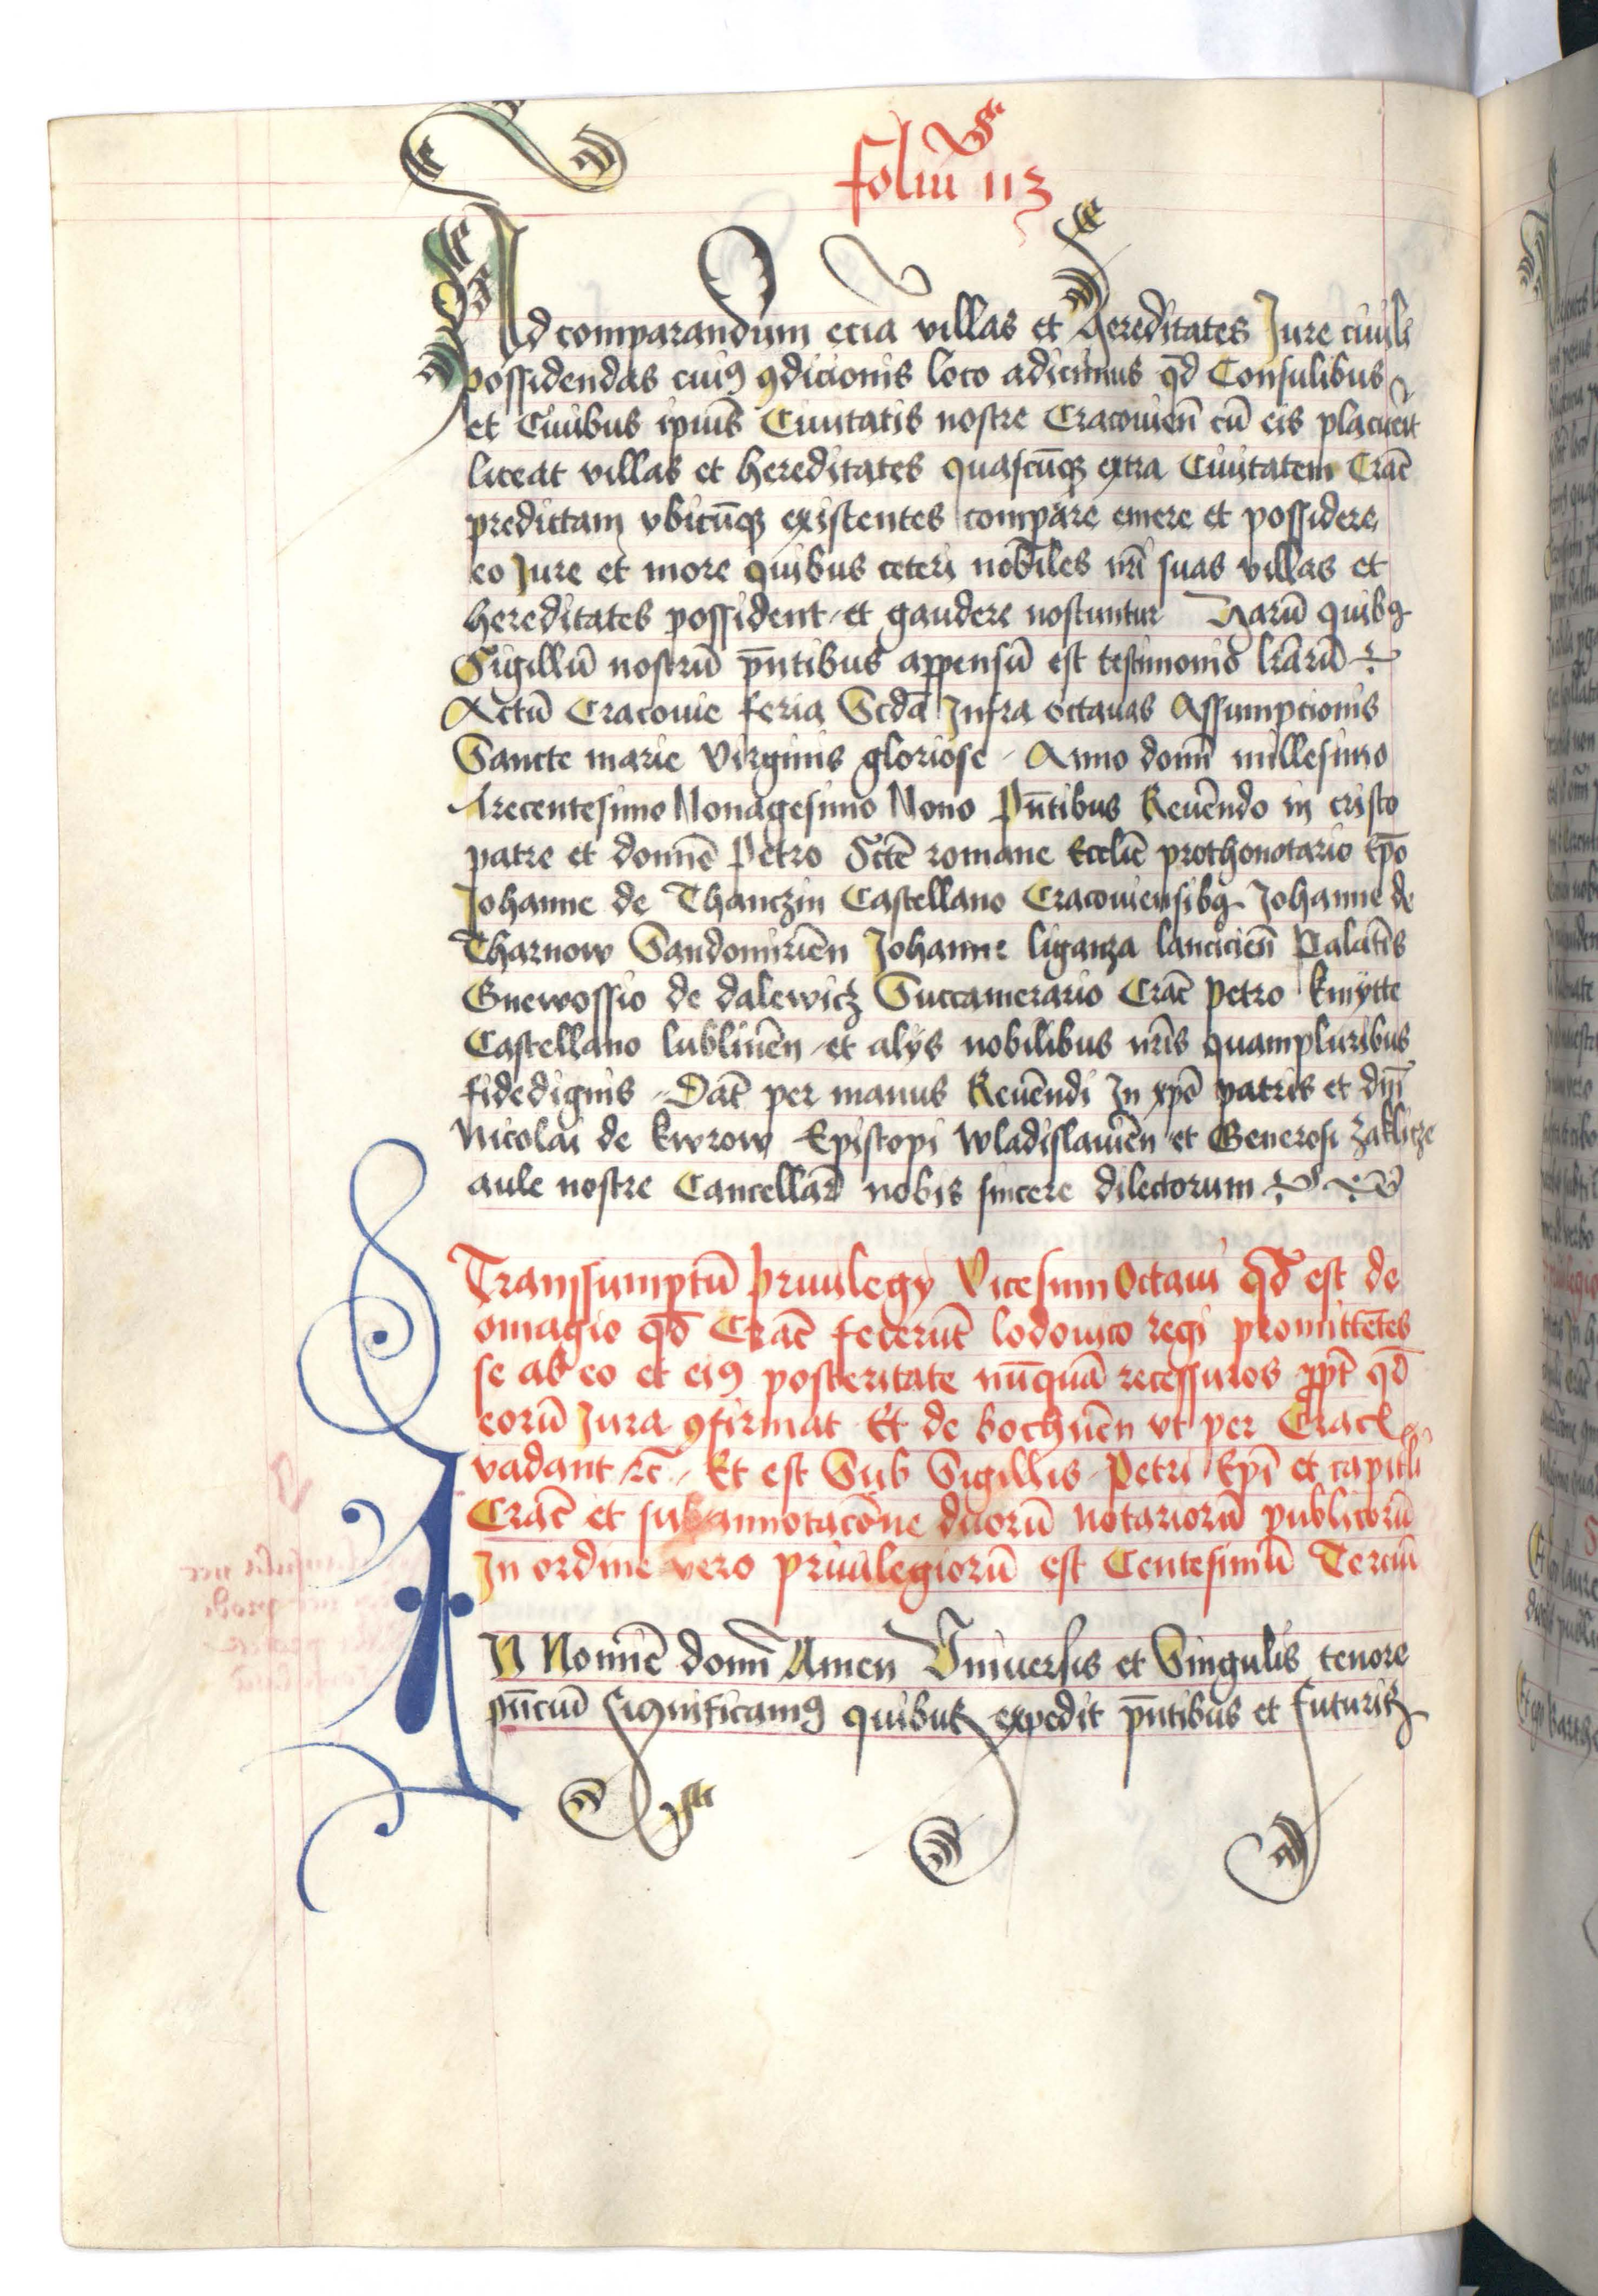 foliū 113
Ad comparandum ecia villas et hereditates Jure ciuili
possidendas cuiꝰ ꝯdicionis loco adicimus qd̄ Consulibus
et Ciuibus ipiuſ Ciuitatis nostre Cracouien̄ cū eis placuerit
liceat villas et hereditates quascūqꝫ extra Ciuitatem Crac̄
predictam vbicūqꝫ existentes compare emere et possidere
eo Jure et more quibus ceteri nobiles nr̄i suas villas et
hereditates possident et gaudere noscuntur Harū quibꝰ
Sigillū nostrū pn̄tibus appensū est testimonio lr̄arū
Actū Cracouie feria Scd̄a Infra octauas Assumpcionis
Sancte marie Virginis gloriose Anno domī millesimo
Trecentesimo Nonagesimo Nono Pn̄tibus Reuēndo in cristo
patre et domnē Petro Sctē romane Eccliē prothonotario Ep̄o
Johanne de Thanczin Castellano Cracouiensibꝫ Johanne de
Tharnow Sandomiriēn Johanne liganza lanciciēn Palatīs
Gnewossio de dalewicz Succamerario Crac̄ Petro kmytte
Castellano lubliniēn et alijs nobilibus nr̄is quampluribus
fidedignis Dat̄ per manus Reuēndi In xp̄o patris et dn̄i
Nicolai de kwrow Episcopi wladislauiēn et Generosi Zaklicze
aule nostre Cancellar̄ nobis sincere dilectorum
Transsumptū priuilegy Vicesimi Octaui qd̄ est de
omagio qd̄ Crac̄ fecerūt lodouico regi promittētes
se ab eo et eiꝰ posteritate nūquā recessuros ppt̄ qd̄
eorū Jura ꝯfirmat Et de bochnēn vt per Crac̄
vadant ꝛc̄ Et est Sub Sigillis Petri Ep̄i et capitli
Crac̄ et sub annotacōne duorū notariorū publicorū
In ordine vero priuilegiorū est Centesimū Terciū
IN Nomīe domī Amen Vniuersis et Singulis tenore
pn̄ciū significamꝰ quibus expedit pn̄tibus et futuris